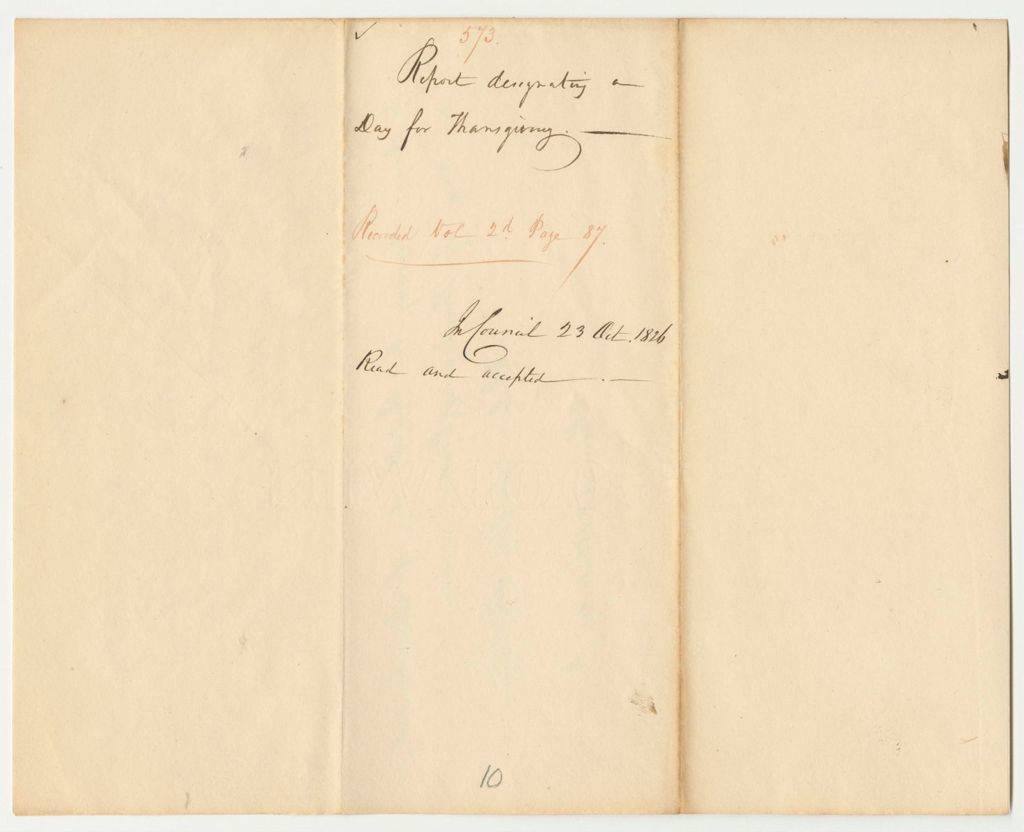 573.
Report designating a
Day for Thansgiving.
Recorded Vol 2d Page 87.
In Council 23 Oct. 1826
Read and accepted
10